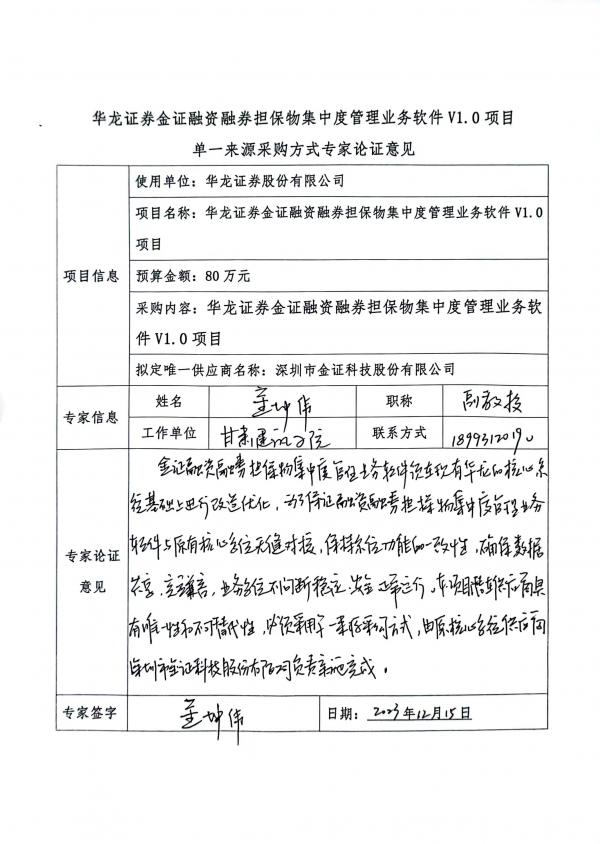 华龙证券金证融资融券担保物集中度管理业务软件 V1.0 项目
单一来源采购方式专家论证意见
项目信息
使用单位：华龙证券股份有限公司
项目名称：华龙证券金证融资融券担保物集中度管理业务软件 V1.0
项目
预算金额：80 万元
采购内容：华龙证券金证融资融券担保物集中度管理业务软
件 V1.0 项目
拟定唯一供应商名称：深圳市金证科技股份有限公司
专家信息
姓名
坤伟
职称
副教授
工作单位
甘肃建设学院
联系方式
专家论证
意见
金证融资融券担保物集中度管理业务软件须在现有华龙的核心系
统基础上进行改造优化，为了保证融资融券担保物集中度管理业务
软件与原有核心系统无缝对接，保持系统功能的一致性，确保数据
共享，业务系统不间断稳定、安全、正常运行，本项目供应商具
有唯一性和不可替代性，必须采用单一来源采购方式，由原核心系统供应商
深圳市金证科技股份有限公司负责实施完成。
专家签字
坤伟
日期：2023年12月15日